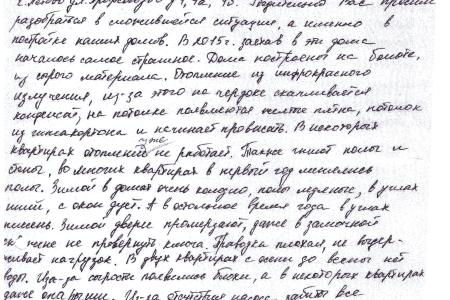 разобраться в сложившейся ситуации, а именно в
постройке наших домов. В 2015г. заехав в эти дома
началось самое страшное. Дома построены на болоте,
из сырого материала. Отопление из инфрокрасного
излучения, из-за этого на чердаке скапливается
конденсат, на потолке появляются желтые пятна, потолок
из гипсакартона и начинает провисать. В некоторых
квартирах отопление уже не работает. Также гниют полы и
стены, во многих квартирах в первый год менялись
полы. Зимой в домах очень холодно, полы ледяные, в углах
иней, с окон дует. А в остальное время года в углах
плесень. Зимой двери промерзают, даже в замочной
не провернуть ключа. Проводка плохая, не выдер-
живает нагрузок. В двух квартирах с осени до весны нет
воды. Из-за сырости появились блохи, а в некоторых квартирах
даже опарыши. Из-за отсутствия